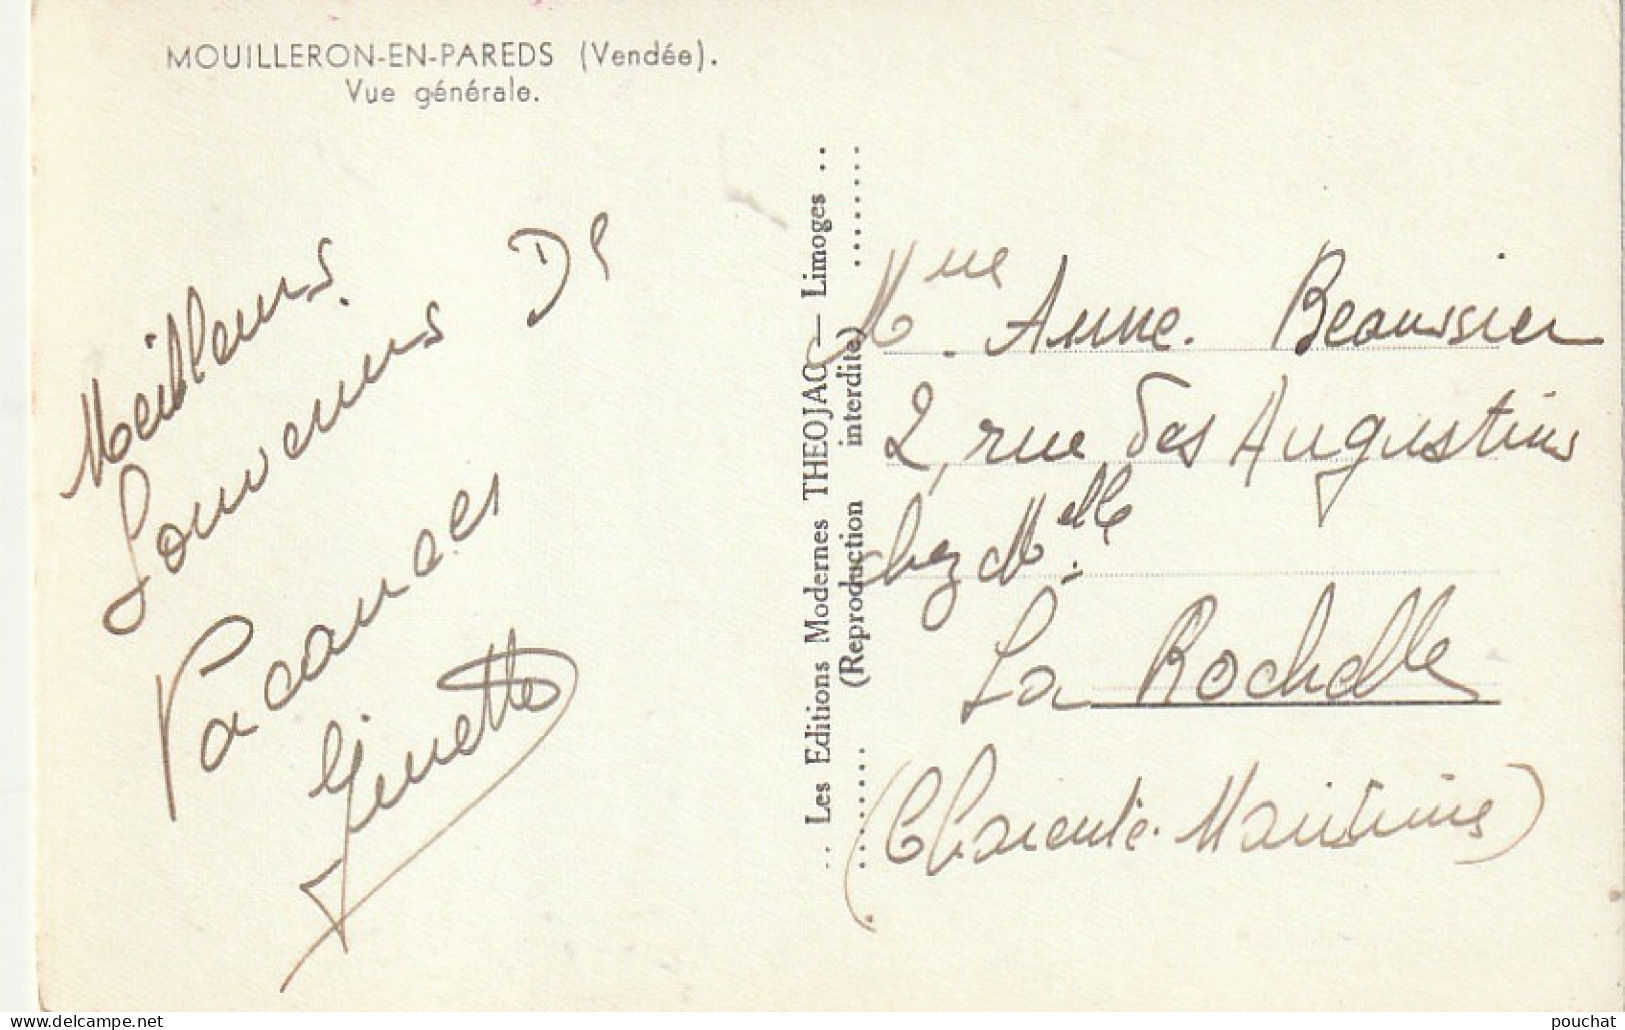 MOUILLERON-EN-PAREDS (Vendée).
Vue générale.
Meilleurs
Souvenirs De
Vacances
Ginette
.. Les Editions Modernes THEOJAC — Limoges ..
(Reproduction interdite)
Mme. Anne. Beaussier
2, rue des Augustins
chez Melle.
La Rochelle
(Charente-Maritime)
www.delcampe.net
pouchat